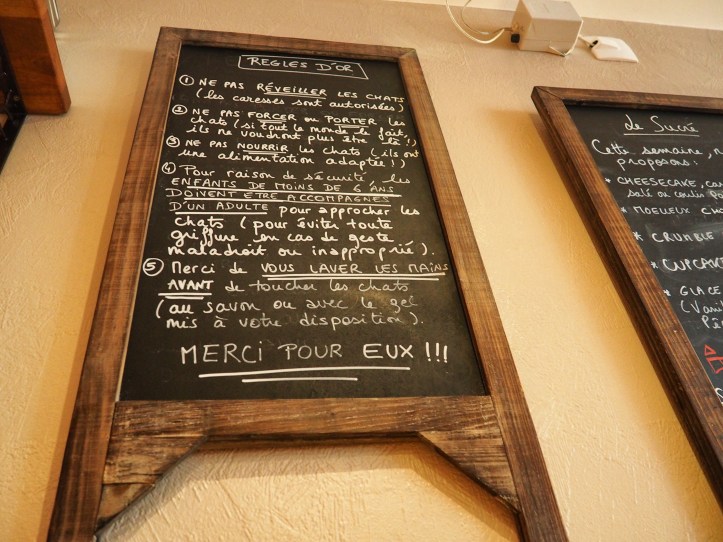 REGLES D'OR
① NE PAS RÉVEILLER LES CHATS
(les caresses sont autorisées)
② NE PAS FORCER ou PORTER les
chats (si tout le monde le fait,
ils ne voudront plus être là !)
③ NE PAS NOURRIR les chats (ils ont
une alimentation adaptée !)
④ Pour raison de sécurité, les
ENFANTS DE MOINS DE 6 ANS
DOIVENT ETRE ACCOMPAGNES
D'UN ADULTE pour approcher les
chats (pour éviter toute
griffure en cas de geste
maladroit ou inapproprié).
⑤ Merci de VOUS LAVER LES MAINS
AVANT de toucher les chats
(au savon ou avec le gel
mis à votre disposition).
MERCI POUR EUX !!!
Le Sucré
Cette semaine,
proposons :
* CHEESECAKE,
salé ou coulis
* MOELLEUX
* CRUMBLE
* CUPCAKE
* GLACE